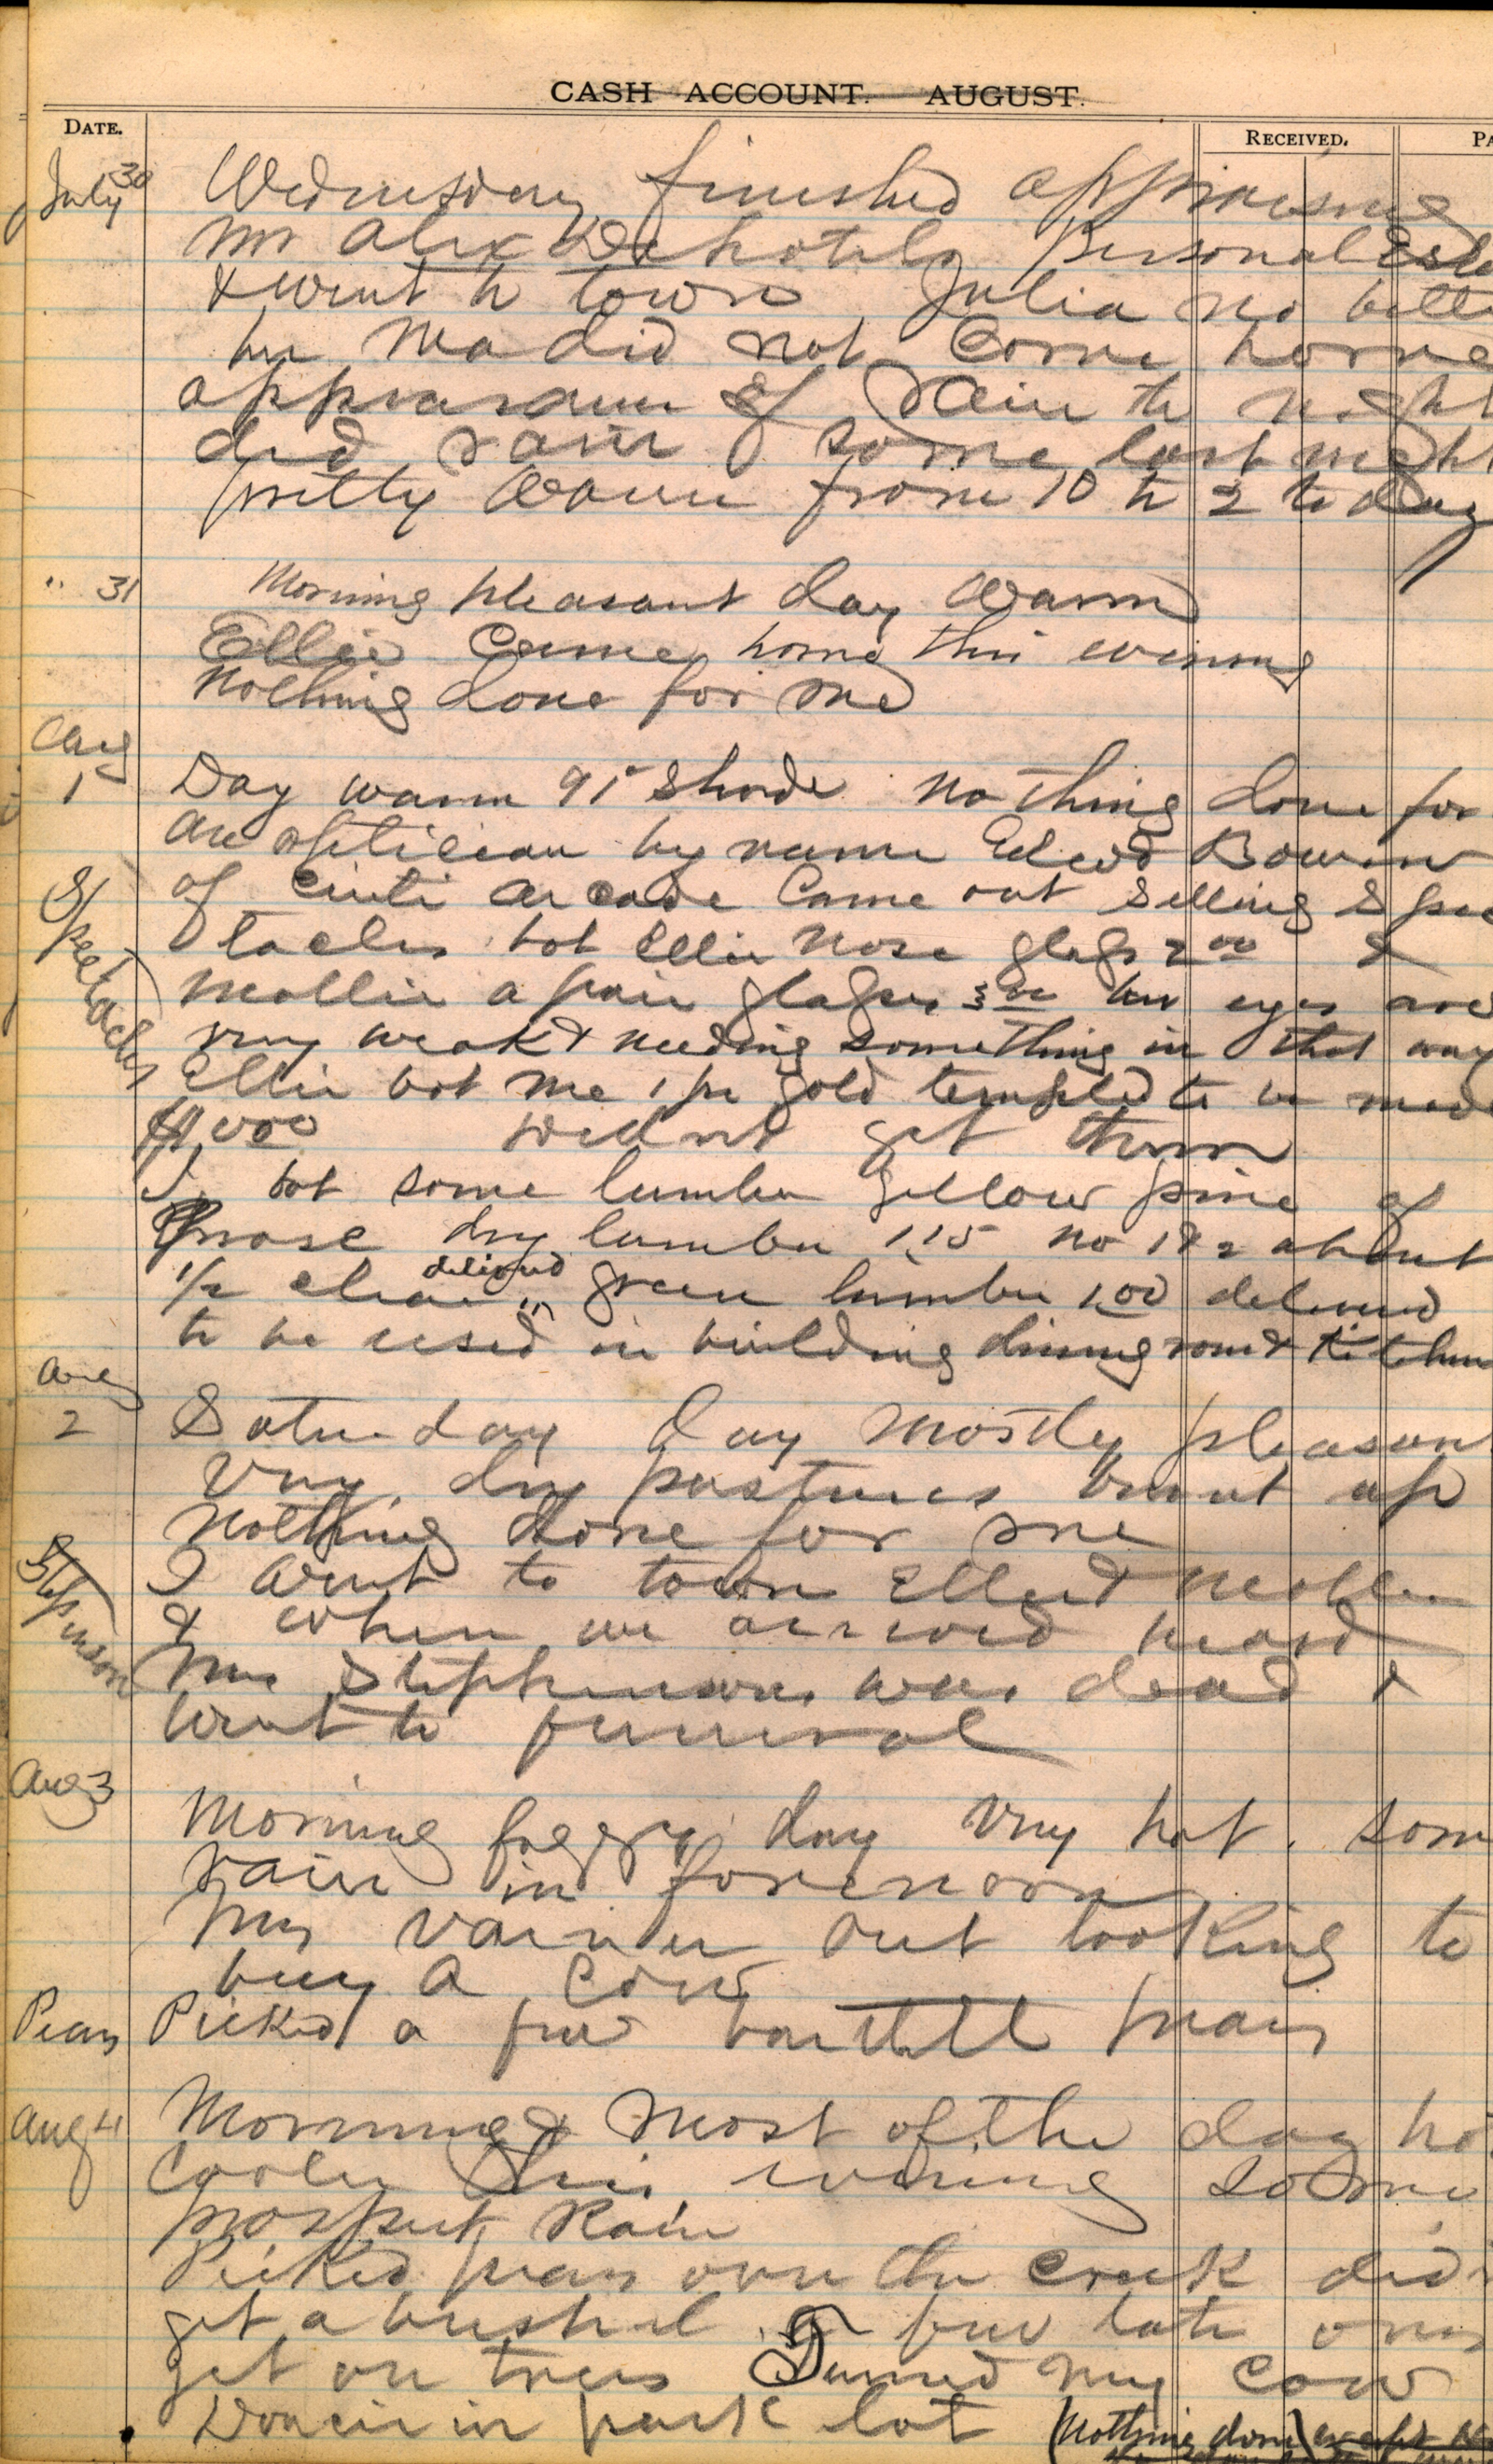 CASH ACCOUNT. AUGUST.
DATE. RECEIVED. PA
July 30 Wednesday finished appraising
Mr Alex personal Este
& went to town Julia no bette
her Ma did not Come home
appearanc of Rain to night
did rain some last night
pretty warm from 10 to 2 to day
" 31 Morning pleasant day warm
Ellie Came home this evening
Nothing done for me
Aug
1 Day warm 91° Shade Nothing done for
An optician by name Edwd Bowen
of Cinti arcade Came out Selling Spec
Spectacles
tacles bot Ellie nose glass 2 00 &
Mollie a pair glasses 3 00 her eyes are
very weak & needing something in that way
Ellie bot me 1 pr gold templed to be made
get them
I bot some lumber Yellow pine of
dry lumber 1.15 no 1 & 2 about
1/2 clear delivered green lumber 1.00 delivered
to be used in building dining room & Kitchen
Aug
2 Saturday day mostly pleasan
Very dry pastures burnt up
Nothing done for me
Stepenson
I went to town Ellie & Mollie
& when we arrived heard
Mrs Stephenson was dead &
went to funeral
Aug 3
Morning foggy day very hot. Som
rain in forenoon
Mrs out looking to
buy a Cow
Pears Picked a few bartlett pears
Aug 4 Morning & most of the day ho
Cooler this evening Some
prospect Rain
Picked pears over the Creek did
get a bushel a few late ones
yet on trees Turned my Cow
in park lot (Nothing done) except